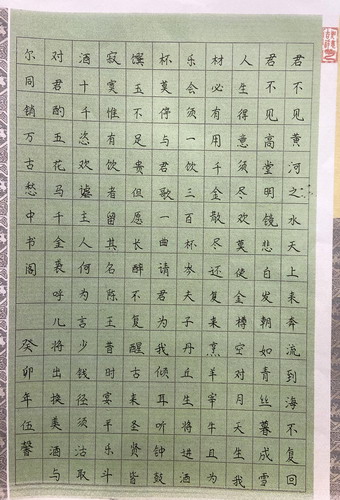 君不见黄河之水天上来奔流到海不复回
君不见高堂明镜悲白发朝如青丝暮成雪
人生得意须尽欢莫使金樽空对月天生我
材必有用千金散尽还复来烹羊宰牛且为
乐会须一饮三百杯岑夫子丹丘生将进酒
杯莫停与君歌一曲请君为我倾耳听钟鼓
馔玉不足贵但愿长醉不复醒古来圣贤皆
寂寞惟有饮者留其名陈王昔时宴平乐斗
酒十千恣欢谑主人何为言少钱径须沽取
对君酌五花马千金裘呼儿将出换美酒与
尔同销万古愁中书阁癸卯年伍馨